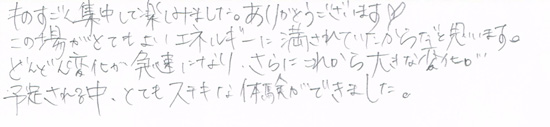 ものすごく集中して楽しみました。ありがとうございます♡
この場がとてもよいエネルギーに満されていたからだと思います。
どんどん変化が急速になり、さらにこれから大きな変化が
予定される中、とてもステキな体験ができました。